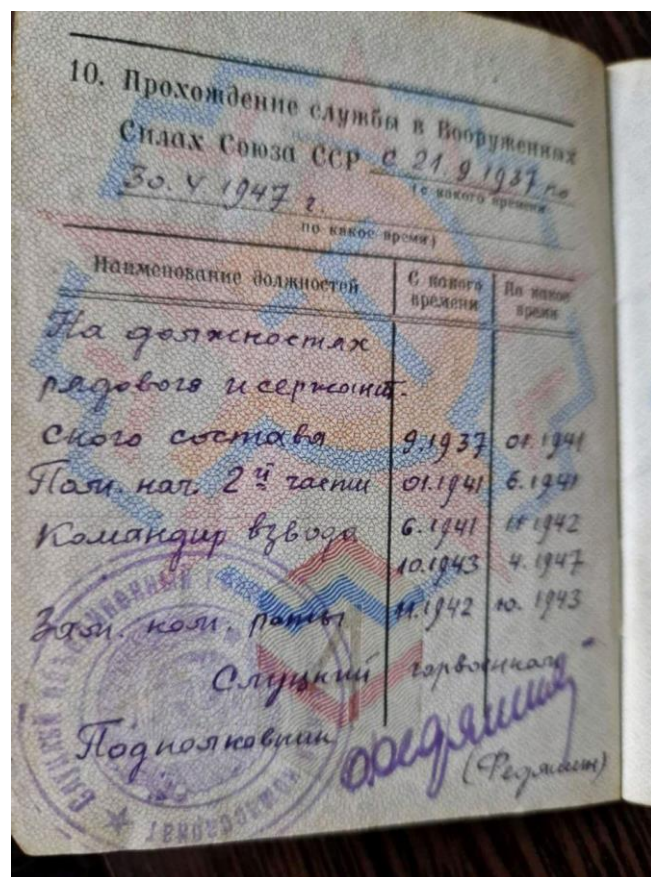 10. Прохождение службы в Вооруженных
Силах Союза ССР с 21.9.1937 по
(с какого времени
30.4 1947 г.
по какое время)
Наименование должностей
С какого времени
По какое время
На должностях
рядового и сержант-
ского состава 9.1937 01.1941
Пом. нач. 2й части 01.1941 6.1941
Командир взвода 6.1941 11.1942
10.1943 4.1947
Зам. ком. роты 11.1942 10.1943
Слуцкий горвоенком
Подполковник
(Федяшин)